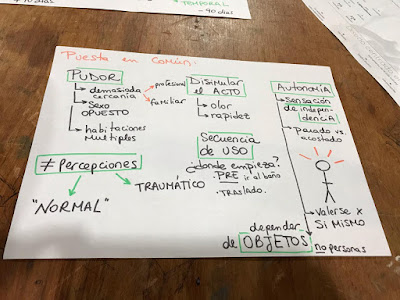 + TEMPORAL
- 90 DÍAS
Puesta en común:
PUDOR
demasiada cercanía
profesional
familiar
Sexo OPUESTO
habitaciones Múltiples
Disimular el ACTO
olor
rapidez
AUTONOMÍA
sensación de independencia
parado vs. acostado
Valerse x Sí MISMO
depender de OBJETOS
no personas
Secuencia de USO
¿donde empieza?
.PRE ir al baño
.TRASLADO.
≠ Percepciones
"NORMAL"
TRAUMÁTICO